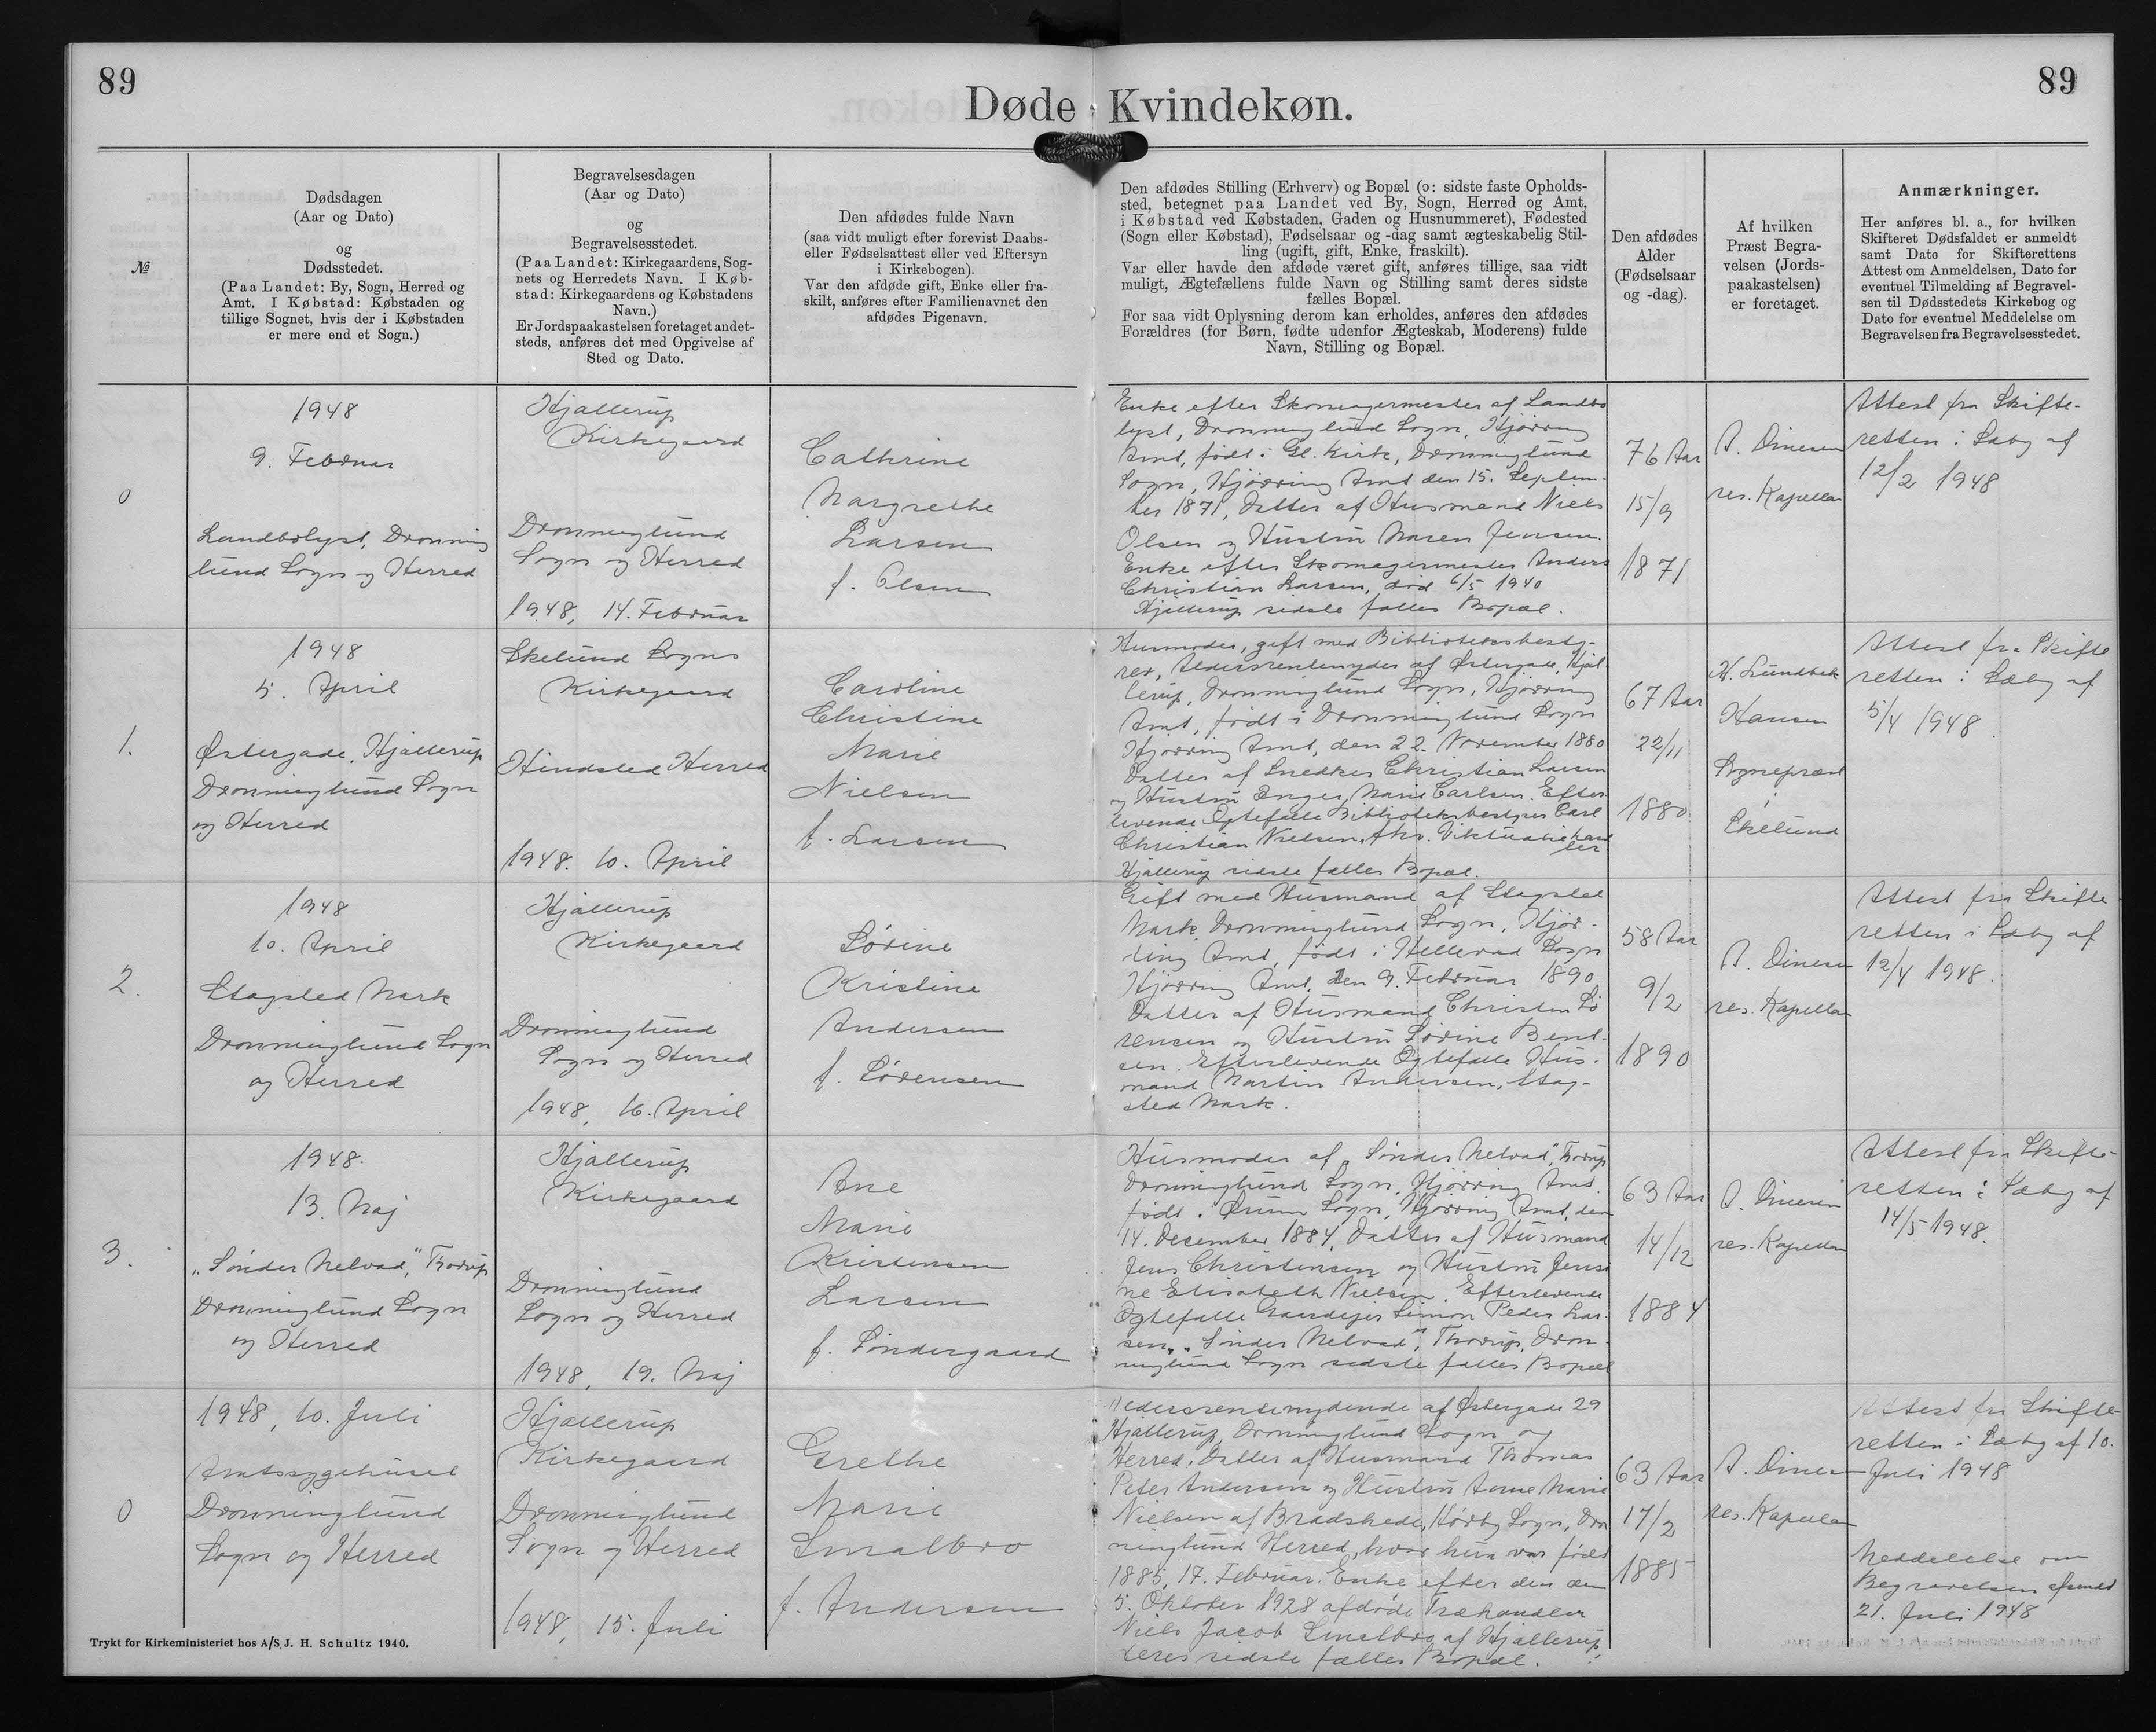 89
89
Døde Kvindekøn.
№
Dødsdagen
(Aar og Dato)
og
Dødsstedet.
(Paa Landet: By, Sogn, Herred og
Amt. I Købstad: Købstaden og
tillige Sognet, hvis der i Købstaden
er mere end et Sogn.)
Begravelsesdagen
(Aar og Dato)
og
Begravelsesstedet.
(Paa Landet: Kirkegaardens, Sog-
nets og Herredets Navn. I Køb-
stad: Kirkegaardens og Købstadens
Navn.)
Er Jordspaakastelsen foretaget andet-
steds, anføres det med Opgivelse af
Sted og Dato.
Den afdødes fulde Navn
(saa vidt muligt efter forevist Daabs-
eller Fødselsattest eller ved Eftersyn
i Kirkebogen).
Var den afdøde gift, Enke eller fra-
skilt, anføres efter Familienavnet den
afdødes Pigenavn.
Den afdødes Stilling (Erhverv) og Bopæl (ɔ: sidste faste Opholds-
sted, betegnet paa Landet ved By, Sogn, Herred og Amt,
i Købstad ved Købstaden, Gaden og Husnummeret), Fødested
(Sogn eller Købstad), Fødselsaar og -dag samt ægteskabelig Stil-
ling (ugift, gift, Enke, fraskilt).
Var eller havde den afdøde været gift, anføres tillige, saa vidt
muligt, Ægtefællens fulde Navn og Stilling samt deres sidste
fælles Bopæl.
For saa vidt Oplysning derom kan erholdes, anføres den afdødes
Forældres (for Børn, fødte udenfor Ægteskab, Moderens) fulde
Navn, Stilling og Bopæl.
Den afdødes
Alder
(Fødselsaar
og -dag).
Af hvilken
Præst Begra-
velsen (Jords-
paakastelsen)
er foretaget.
Anmærkninger.
Her anføres bl. a., for hvilken
Skifteret Dødsfaldet er anmeldt
samt Dato for Skifterettens
Attest om Anmeldelsen, Dato for
eventuel Tilmelding af Begravel-
sen til Dødsstedets Kirkebog og
Dato for eventuel Meddelelse om
Begravelsen fra Begravelsesstedet.
0
1948
9. Februar
Landbolyst, Dronning
lund Sogn og Herred
Hjallerup
Kirkegaard
Dronninglund
Sogn og Herred
1948, 14. Februar
Cathrine
Margrethe
Larsen
f. Olsen
Enke efter Skomagermester af Landbo
lyst, Dronninglund Sogn, Hjørring
Amt, født i Gl. Kirk, Dronninglund
Sogn, Hjørring Amt den 15. Septem-
ber 1871, Datter af Husmand Niels
Olsen og Hustru Maren Jensen.
Enke efter Skomagermester Anders
Christian Larsen, død 6/5 1940
Hjallerup sidste fælles Bopæl.
76 Aar
15/9
1871
A. Dinesen
res. Kapellan
Attest fra Skifte-
retten i Sæby af
12/2 1948
1.
1948
5. April
Østergade, Hjallerup
Dronninglund Sogn
og Herred
Skelund Sogns
Kirkegaard
Hindsted Herred
1948. 10. April
Caroline
Christine
Marie
Nielsen
f. Larsen
Husmoder, gift med Biblioteksbesty-
rer, Aldersrentenyder af Østergade, Hjal-
lerup, Dronninglund Sogn, Hjørring
Amt, født i Dronninglund Sogn
Hjørring Amt, den 22. November 1880
Datter af Snedker Christian Larsen
og Hustru Inger Marie Carlsen. Efter-
levende Ægtefælle Biblioteksbestyrer Carl
Christian Nielsen, fhv. Viktualiehand
ler
Hjallerup sidste fælles Bopæl.
67 Aar
22/11
1880
H. Lundbek
Hansen
Sognepræst
i
Skelund
Attest fra Skifte
retten i Sæby af
5/4 1948.
2.
1948
10. April
Stagsted Mark
Dronninglund Sogn
og Herred
Hjallerup
Kirkegaard
Dronninglund
Sogn og Herred
1948, 16. April
Sørine
Kristine
Andersen
f. Sørensen
Gift med Husmand af Stagsted
Mark, Dronninglund Sogn, Hjør-
ring Amt, født i Hellevad Sogn
Hjørring Amt, den 9. Februar 1890
Datter af Husmand Christen Sø
rensen og Hustru Sørine Bent-
sen. Efterlevende Ægtefælle Hus-
mand Martin Andersen, Stag-
sted Mark.
58 Aar
9/2
1890
A. Dinesen
res. Kapellan
Attest fra Skifte-
retten i Sæby af
12/4 1948.
3.
1948.
13. Maj
"Sønder Melvad", Thorup
Dronninglund Sogn
og Herred
Hjallerup
Kirkegaard
Dronninglund
Sogn og Herred
1948, 19. Maj
Ane
Marie
Kristensen
Larsen
f. Søndergaard
Husmoder af "Sønder Melvad", Thorup
Dronninglund Sogn, Hjørring Amt.
født i Ørum Sogn, Hjørring Amt, den
14. December 1884, Datter af Husmand
Jens Christensen og Hustru Jensi
ne Elisabeth Nielsen. Efterlevende
Ægtefælle Gaardejer Simon Peder Lar-
sen, "Sønder Melvad", Thorup, Dron-
ninglund Sogn sidste fælles Bopæl
63 Aar
14/12
1884
A. Dinesen
res. Kapellan
Attest fra Skifte-
retten i Sæby af
14/5 1948.
0
1948, 10. Juli
Amtssygehuset
Dronninglund
Sogn og Herred
Hjallerup
Kirkegaard
Dronninglund
Sogn og Herred
1948, 15. Juli
Grethe
Marie
Smalbro
f. Andersen
Aldersrentenydende af Østergade 29
Hjallerup, Dronninglund Sogn og
Herred, Datter af Husmand Thomas
Peter Andersen og Hustru Anne Marie
Nielsen af Bradskede, Hørby Sogn, Dron
ninglund Herred, hvor hun var født
1885, 17. Februar. Enke efter den den
5. Oktober 1928 afdøde Træhandler
Niels Jacob Smalbro af Hjallerup,
deres sidste fælles Bopæl.
63 Aar
17/2
1885
A. Dinesen
res. Kapellan
Attest fra Skifte-
retten i Sæby af 10.
Juli 1948
Meddelelse om
Begravelsen afsendt
21. Juli 1948
Trykt for Kirkeministeriet hos A/S J. H. Schultz 1940.